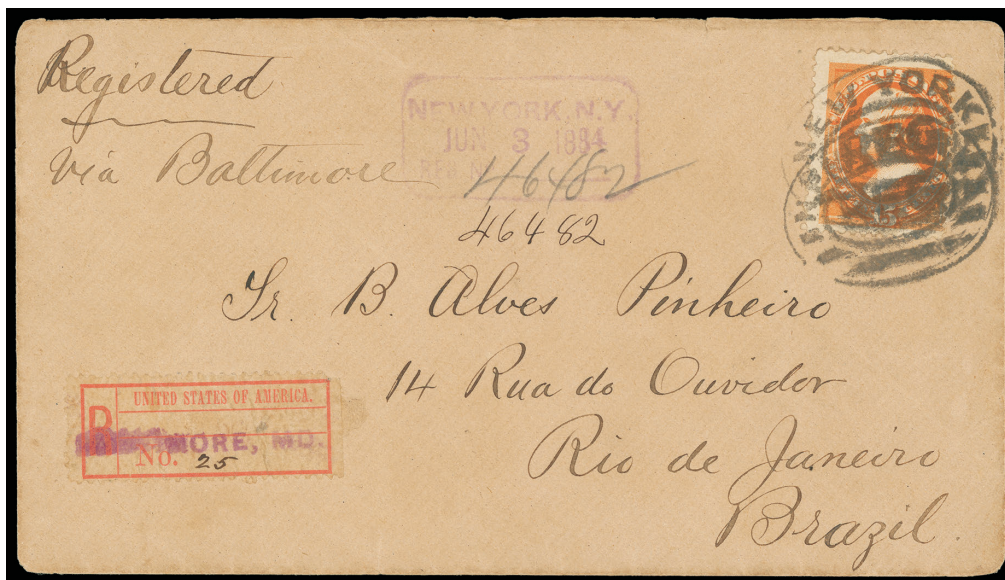 Registered
via Baltimore
NEW YORK, N.Y.
JUN 3 1884
REG. N
46482
46482
NEW YORK
Sr. B. Alves Pinheiro
14 Rua do Ouvidor
Rio de Janeiro
Brazil.
UNITED STATES OF AMERICA.
R
MORE, MD.
No. 25